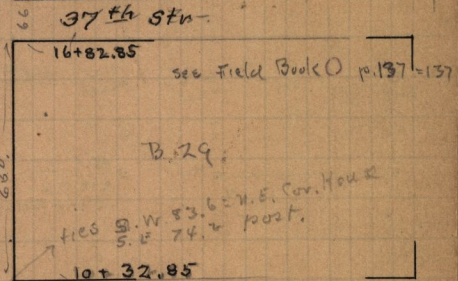 66
37th Str.
16+82.85
see Field Book () p.137=137
B.29.
650.
ties S.W 83.6 = N.E. Cor. House
S.E 74.2 post.
10+32.85